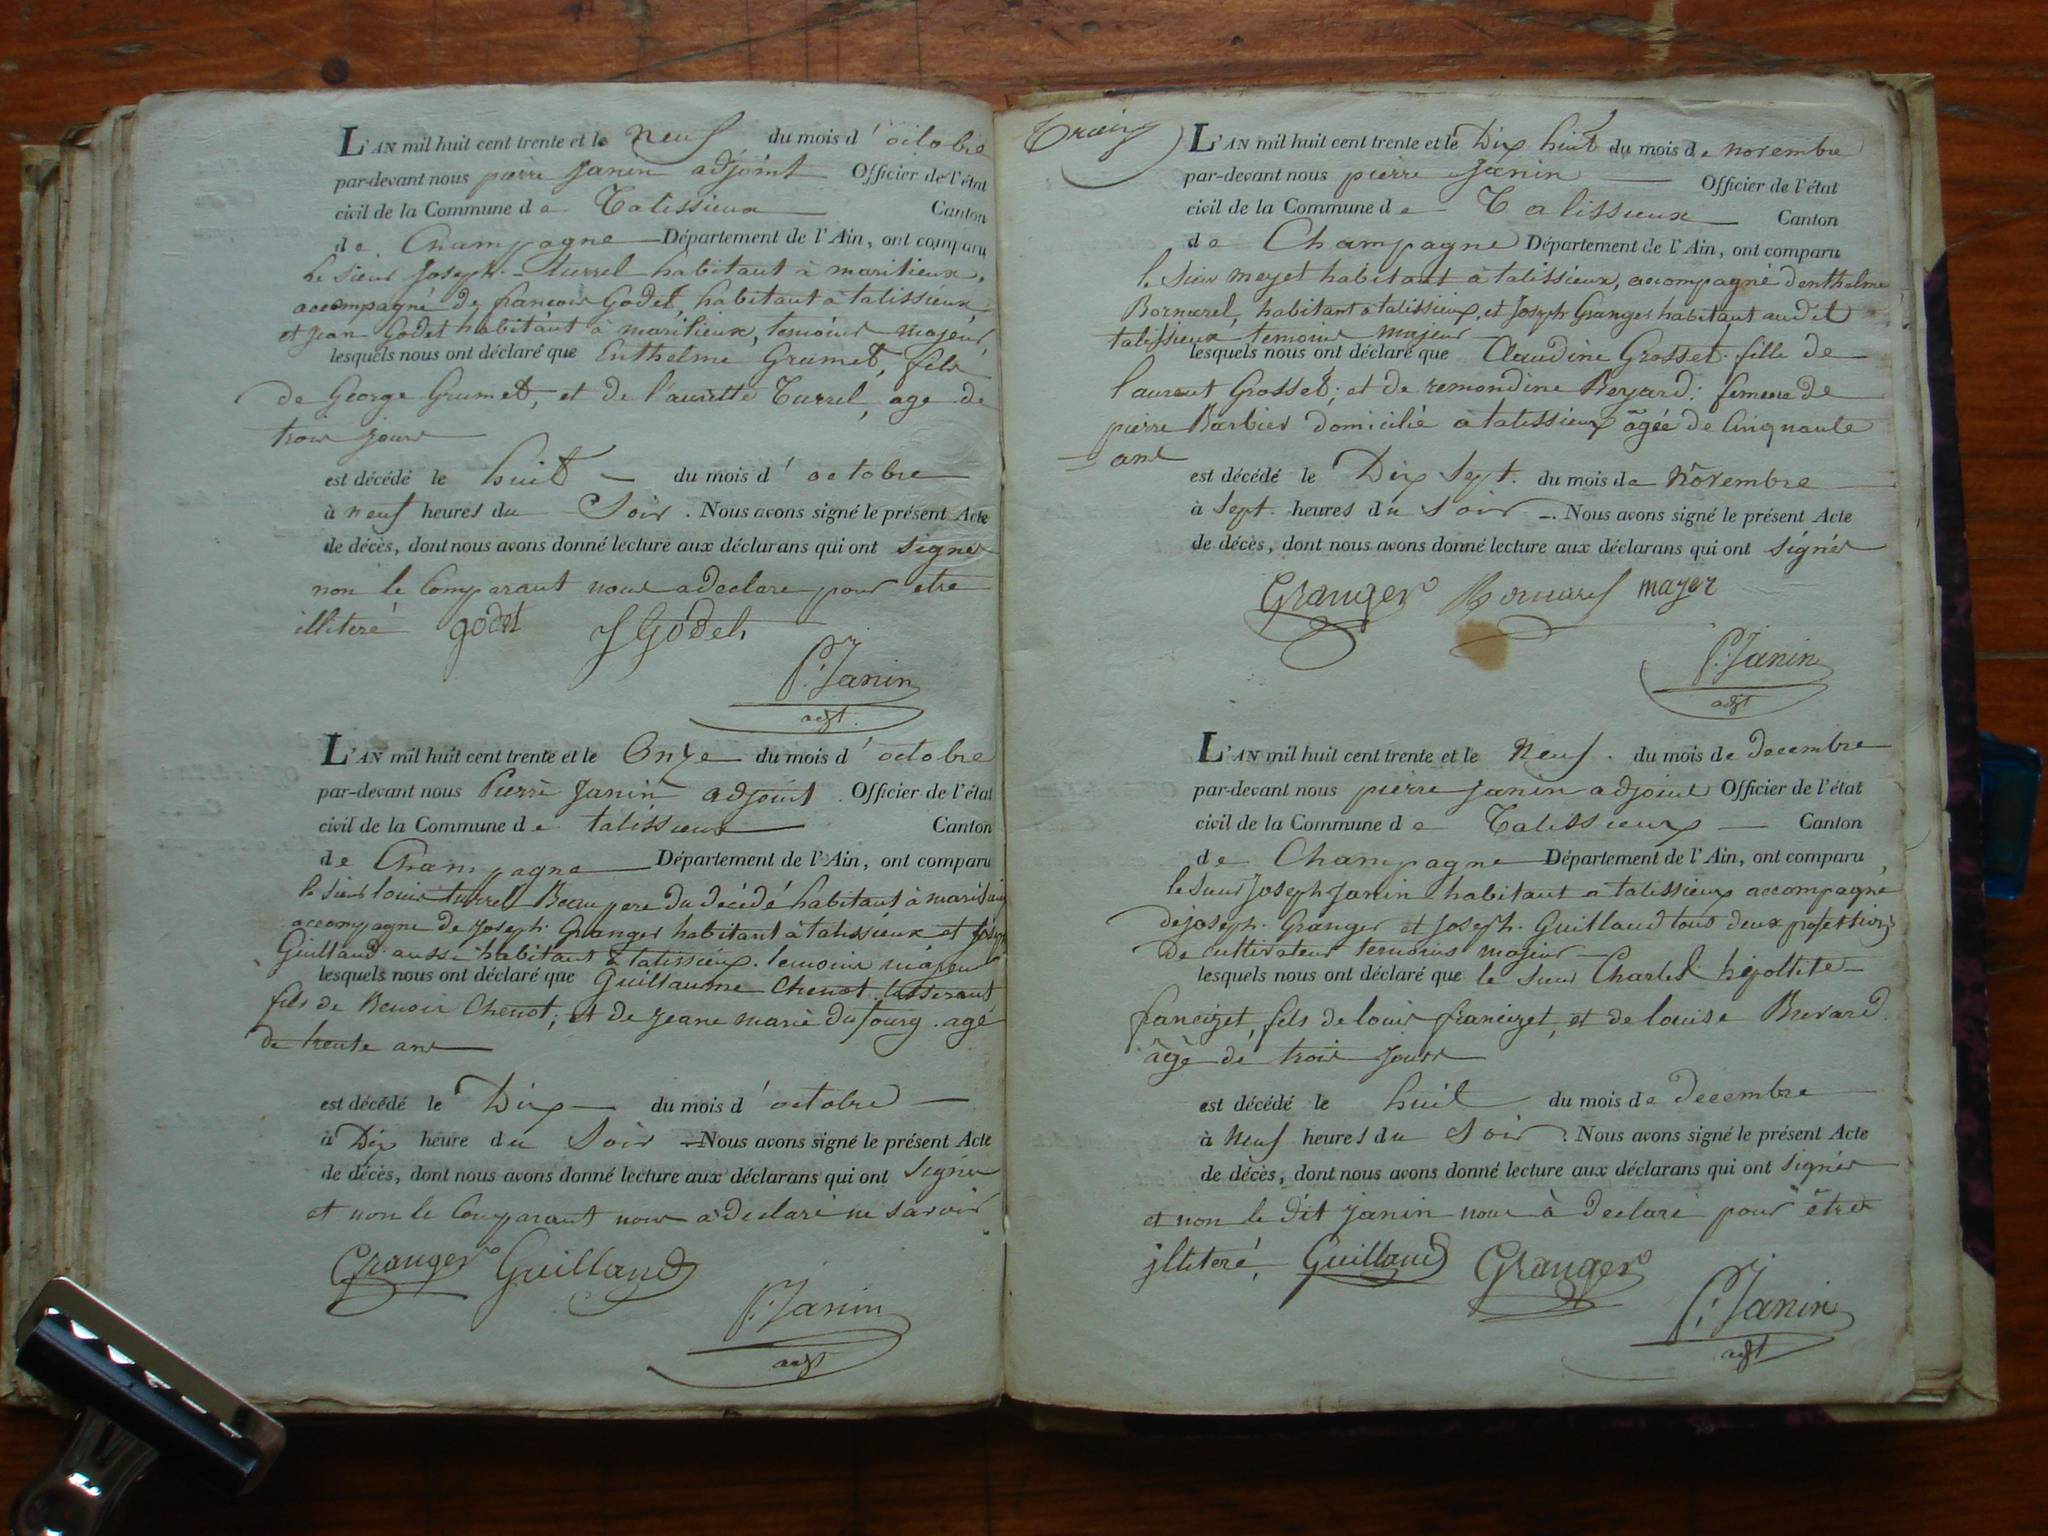 L'AN mil huit cent trente et le neuf du mois d'octobre
par-devant nous pierre Janin adjoint Officier de l'état
civil de la Commune de Talissieux Canton
de Champagne Département de l'Ain, ont comparu
le sieur Joseph turrel habitant à marilieux,
accompagné de francois Godet, habitant à talissieux,
et jean Godet habitant à marilieux, temoins majeur,
lesquels nous ont déclaré que Enthelme Grumet, fils
de George Grumet, et de laurette Turrel, age de
trois jours
est décédé le huit du mois d'octobre
à neuf heures du Soir. Nous avons signé le présent Acte
de décès, dont nous avons donné lecture aux déclarans qui ont signés
non le Comparant nous a declare pour etre
illiteré godet J Godet
P. Janin
adjt.
L'AN mil huit cent trente et le Onze du mois d'octobre
par-devant nous Pierre Janin adjoint Officier de l'état
civil de la Commune de talissieux Canton
de Champagne Département de l'Ain, ont comparu
le sieur louis turrel Beau pere du décédé habitant à
accompagne de Joseph Granger habitant à talissieux et
Guilland aussi habitant à talissieux temoins majeur
lesquels nous ont déclaré que Guillaume Chenot tisserant
fils de Benoit Chenot, et de jeane marie dufourg agé
de trente ans
est décédé le Dix du mois d'octobre
à Dix heure du Soir Nous avons signé le présent Acte
de décès, dont nous avons donné lecture aux déclarans qui ont signer
et non le Comparant nous a declaré ne savoir
Granger Guilland
P. Janin
adjt
L'AN mil huit cent trente et le Dix huit du mois de novembre
par-devant nous pierre Janin Officier de l'état
civil de la Commune de Talissieux Canton
de Champagne Département de l'Ain, ont comparu
le Sieur meyet habitant à talissieux, accompagné denthelme
Bornarel, habitant a talissieux, et Joseph Granger habitant audit
talissieux temoins majeur
lesquels nous ont déclaré que Claudine Grosset fille de
laurent Grosset; et de remondine Beyard: femme de
pierre Barbier domicilié a talissieux âgée de Cinquante
ans
est décédé le Dix Sept. du mois de novembre
à Sept. heures du Soir. Nous avons signé le présent Acte
de décès, dont nous avons donné lecture aux déclarans qui ont signés
Granger Bornarel
P. Janin
adjt
L'AN mil huit cent trente et le neuf. du mois de decembre
par-devant nous pierre janin adjoint Officier de l'état
civil de la Commune de Talissieux Canton
de Champagne Département de l'Ain, ont comparu
le Sieur Joseph Janin habitant a talissieux accompagné
de joseph. Granger et Joseph. Guilland tous deux
de cultivateur temoins majeur
lesquels nous ont déclaré que le sieur Charles hipoltite
francizet, fils de louis francizet, et de louise Burard
âgé de trois jours
est décédé le huit du mois de decembre
à neuf heures du Soir. Nous avons signé le présent Acte
de décès, dont nous avons donné lecture aux déclarans qui ont signés
et non le dit janin nous à declaré pour être
jlliteré, Guilland Granger
P. Janin
adjt